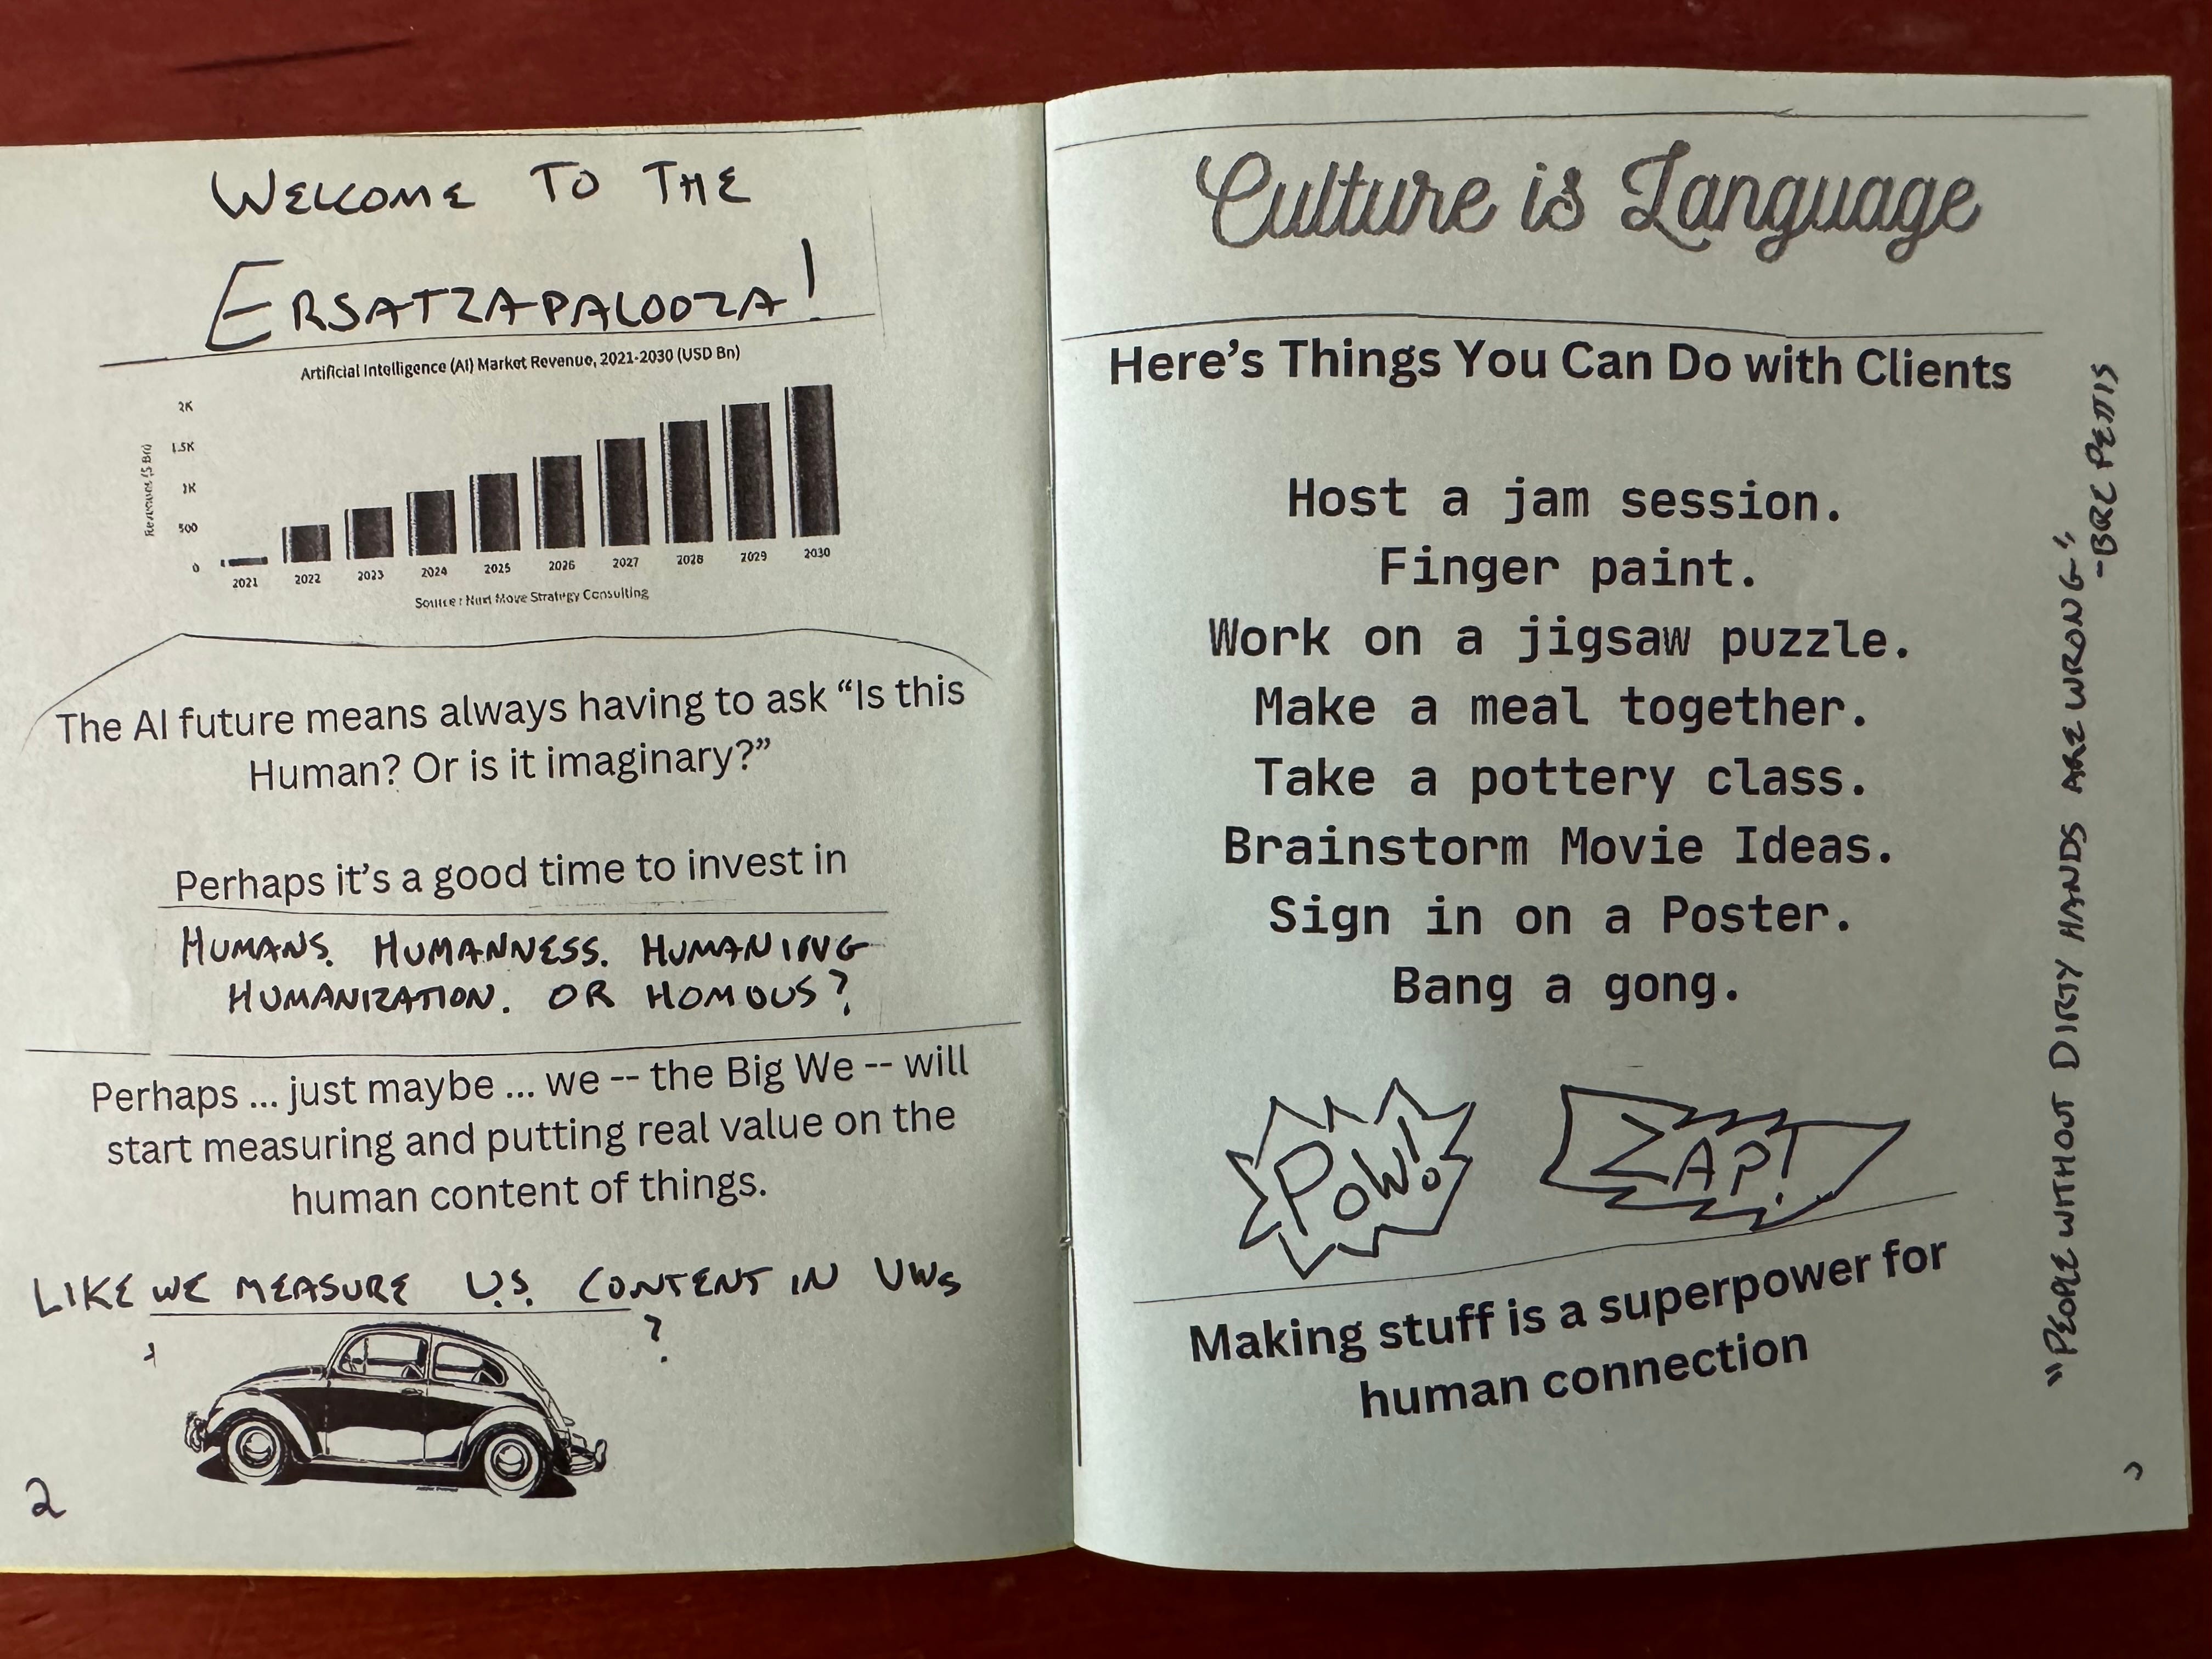 WELCOME TO THE
ERSATZAPALOOZA!
Artificial Intelligence (AI) Market Revenue, 2021-2030 (USD Bn)
Revenues ($ Bn)
2K
1.5K
1K
500
0
2021 2022 2023 2024 2025 2026 2027 2028 2029 2030
Source: Next Move Strategy Consulting
The AI future means always having to ask “Is this
Human? Or is it imaginary?”
Perhaps it’s a good time to invest in
HUMANS. HUMANNESS. HUMANING
HUMANIZATION. OR HOMOUS?
Perhaps ... just maybe ... we -- the Big We -- will
start measuring and putting real value on the
human content of things.
LIKE WE MEASURE U.S. CONTENT IN VWs
?
2
Culture is Language
Here’s Things You Can Do with Clients
Host a jam session.
Finger paint.
Work on a jigsaw puzzle.
Make a meal together.
Take a pottery class.
Brainstorm Movie Ideas.
Sign in on a Poster.
Bang a gong.
POW!
ZAP!
Making stuff is a superpower for
human connection
"PEOPLE WITHOUT DIRTY HANDS ARE WRONG"
-BRE PETTIS